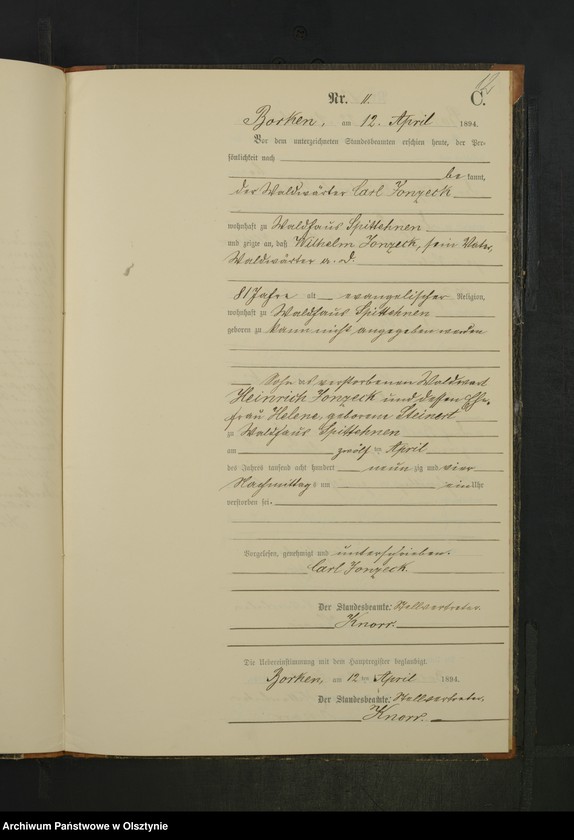 12
Nr. 11. C.
Borken, am 12. April 1894.
Vor dem unterzeichneten Standesbeamten erschien heute, der Per-
sönlichkeit nach
be kannt,
der Waldwärter Carl Jonzeck
wohnhaft zu Waldhaus Spittehnen
und zeigte an, daß Wilhelm Jonzeck, sein Vater,
Waldwärter a. D.
81 Jahre alt evangelischer Religion,
wohnhaft zu Waldhaus Spittehnen
geboren zu kann nicht angegeben werden
Sohn des verstorbenen Waldwart
Heinrich Jonzeck und dessen Ehe-
frau Helene, geborene Steinert
zu Waldhaus Spittehnen
am zwölften April
des Jahres tausend acht hundert neun zig und vier
Nachmittags um ein Uhr
verstorben sei.
Vorgelesen, genehmigt und unterschrieben.
Carl Jonzeck.
Der Standesbeamte: Stellvertreter.
Knorr.
Die Uebereinstimmung mit dem Hauptregister beglaubigt.
Borken, am 12 ten April 1894.
Der Standesbeamte: Stellvertreter.
Knorr.
Archiwum Państwowe w Olsztynie